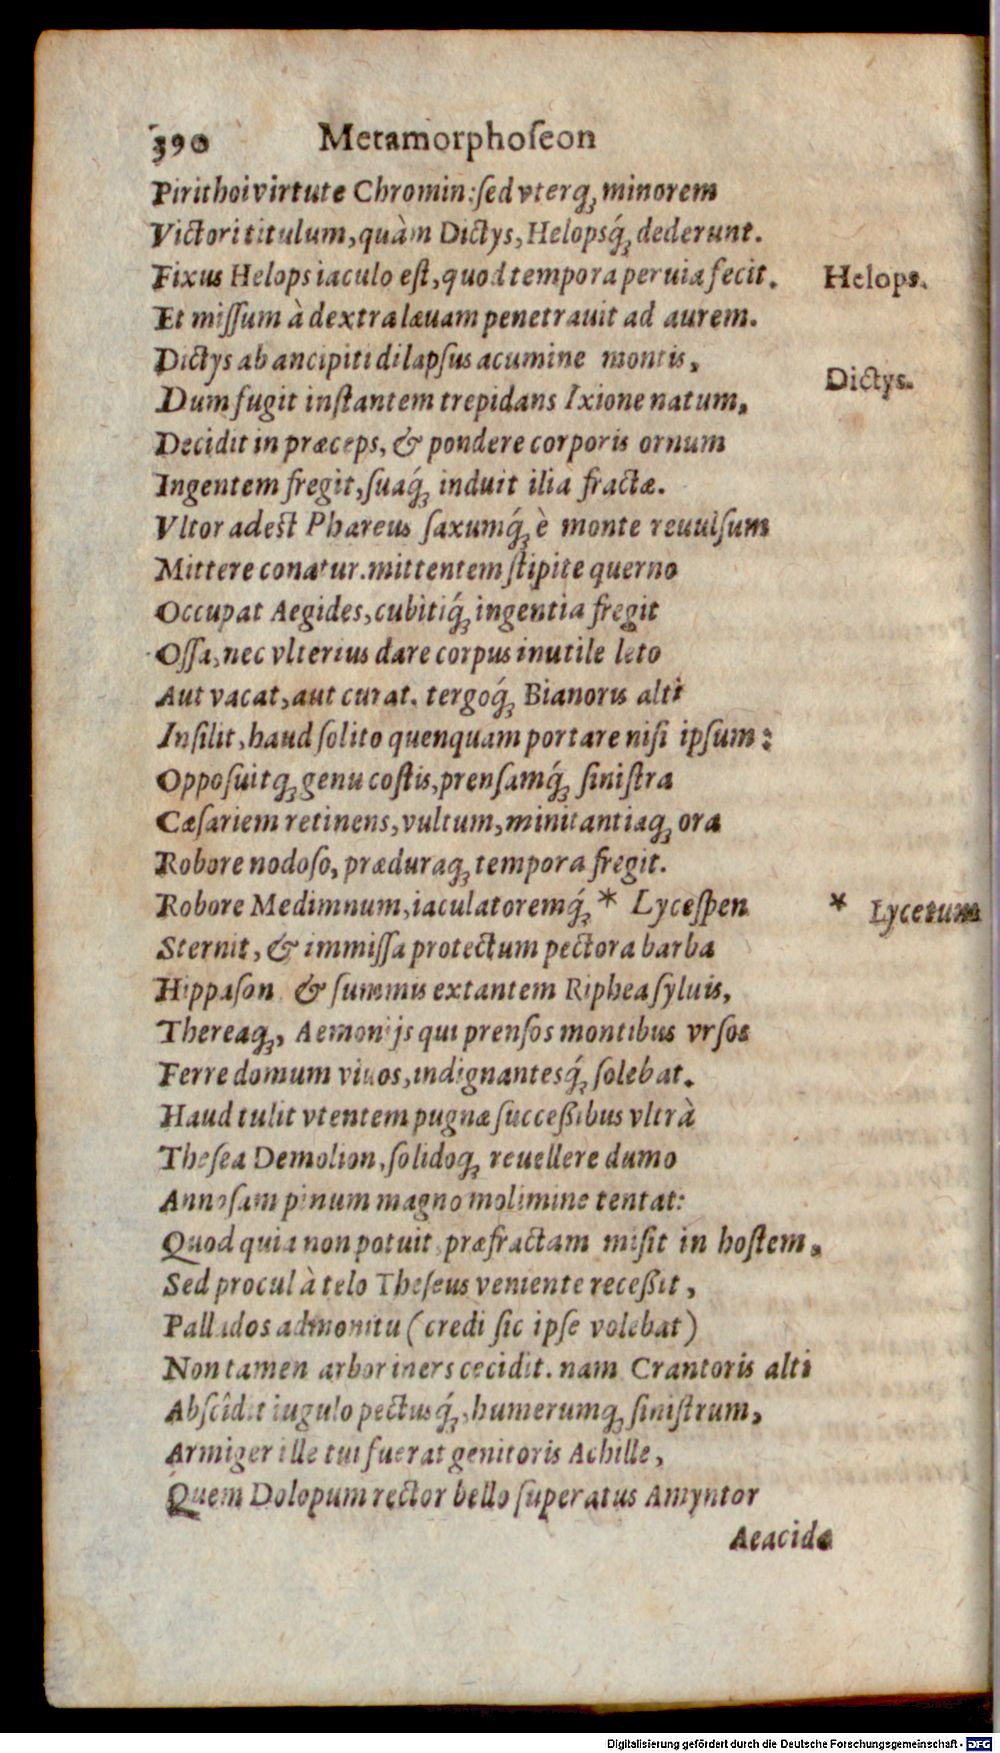 390 Metamorphoſeon
Pirithoi virtute Chromin: ſed vterq́; minorem
Victori titulum, quàm Dictys, Helopsq́; dederunt.
Fixus Helops iaculo eſt, quod tempora peruia fecit. Helops.
Et miſſum à dextra læuam penetrauit ad aurem.
Dictys ab ancipiti dilapſus acumine montis, Dictys.
Dum fugit inſtantem trepidans Ixione natum,
Decidit in præceps, & pondere corporis ornum
Ingentem fregit, ſuaq́; induit ilia fractæ.
Vltor adeſt Phareus ſaxumq́; è monte reuulſum
Mittere conatur. mittentem ſtipite querno
Occupat Aegides, cubitiq́; ingentia fregit
Oſſa, nec vlterius dare corpus inutile leto
Aut vacat, aut curat. tergoq́; Bianoris alti
Inſilit, haud ſolito quenquam portare niſi ipſum:
Oppoſuitq; genu coſtis, prenſamq́; ſiniſtra
Cæſariem retinens, vultum, minitantiaq; ora
Robore nodoſo, præduraq; tempora fregit.
Robore Medimnum, iaculatoremq́; * Lyceſpen * Lycetum
Sternit, & immiſſa protectum pectora barba
Hippaſon & ſummis extantem Riphea ſyluis,
Thereaq;, Aemonijs qui prenſos montibus vrſos
Ferre domum viuos, indignantesq́; ſolebat.
Haud tulit vtentem pugnæ ſucceßibus vltrà
Theſea Demolion, ſolidoq; reuellere dumo
Annoſam pinum magno molimine tentat:
Quod quia non potuit, præfractam miſit in hoſtem,
Sed procul à telo Theſeus veniente receßit,
Pallados admonitu (credi ſic ipſe volebat)
Non tamen arbor iners cecidit. nam Crantoris alti
Abſcîdit iugulo pectusq́;, humerumq; ſiniſtrum,
Armiger ille tui fuerat genitoris Achille,
Quem Dolopum rector bello ſuperatus Amyntor
Aeacidæ
Digitalisierung gefördert durch die Deutsche Forschungsgemeinschaft - DFG